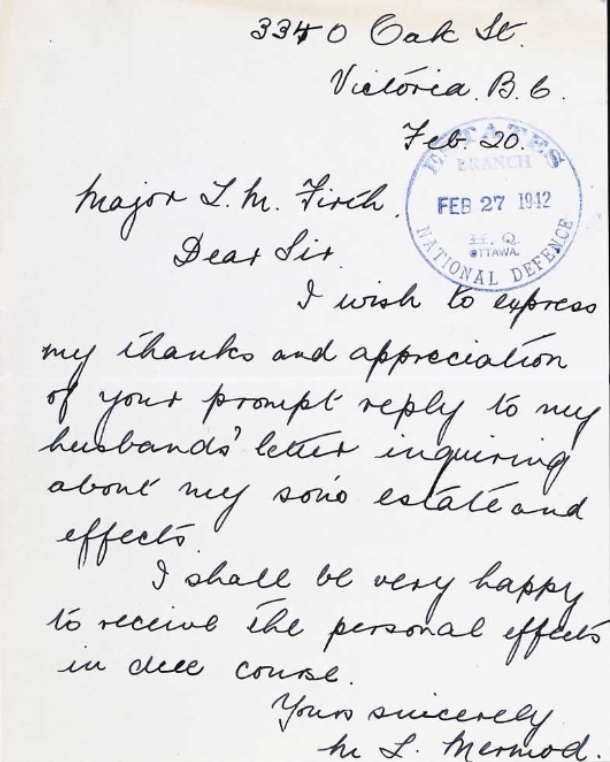 3340 Oak St.
Victoria. B.C.
Feb. 20.
ESTATES
BRANCH
FEB 27 1942
H. Q.
OTTAWA.
NATIONAL DEFENCE
Major L. M. Firth.
Dear Sir.
I wish to express
my thanks and appreciation
of your prompt reply to my
husbands' letter inquiring
about my son's estate and
effects.
I shall be very happy
to receive the personal effects
in due course.
Yours sincerely
M L. Mermod.